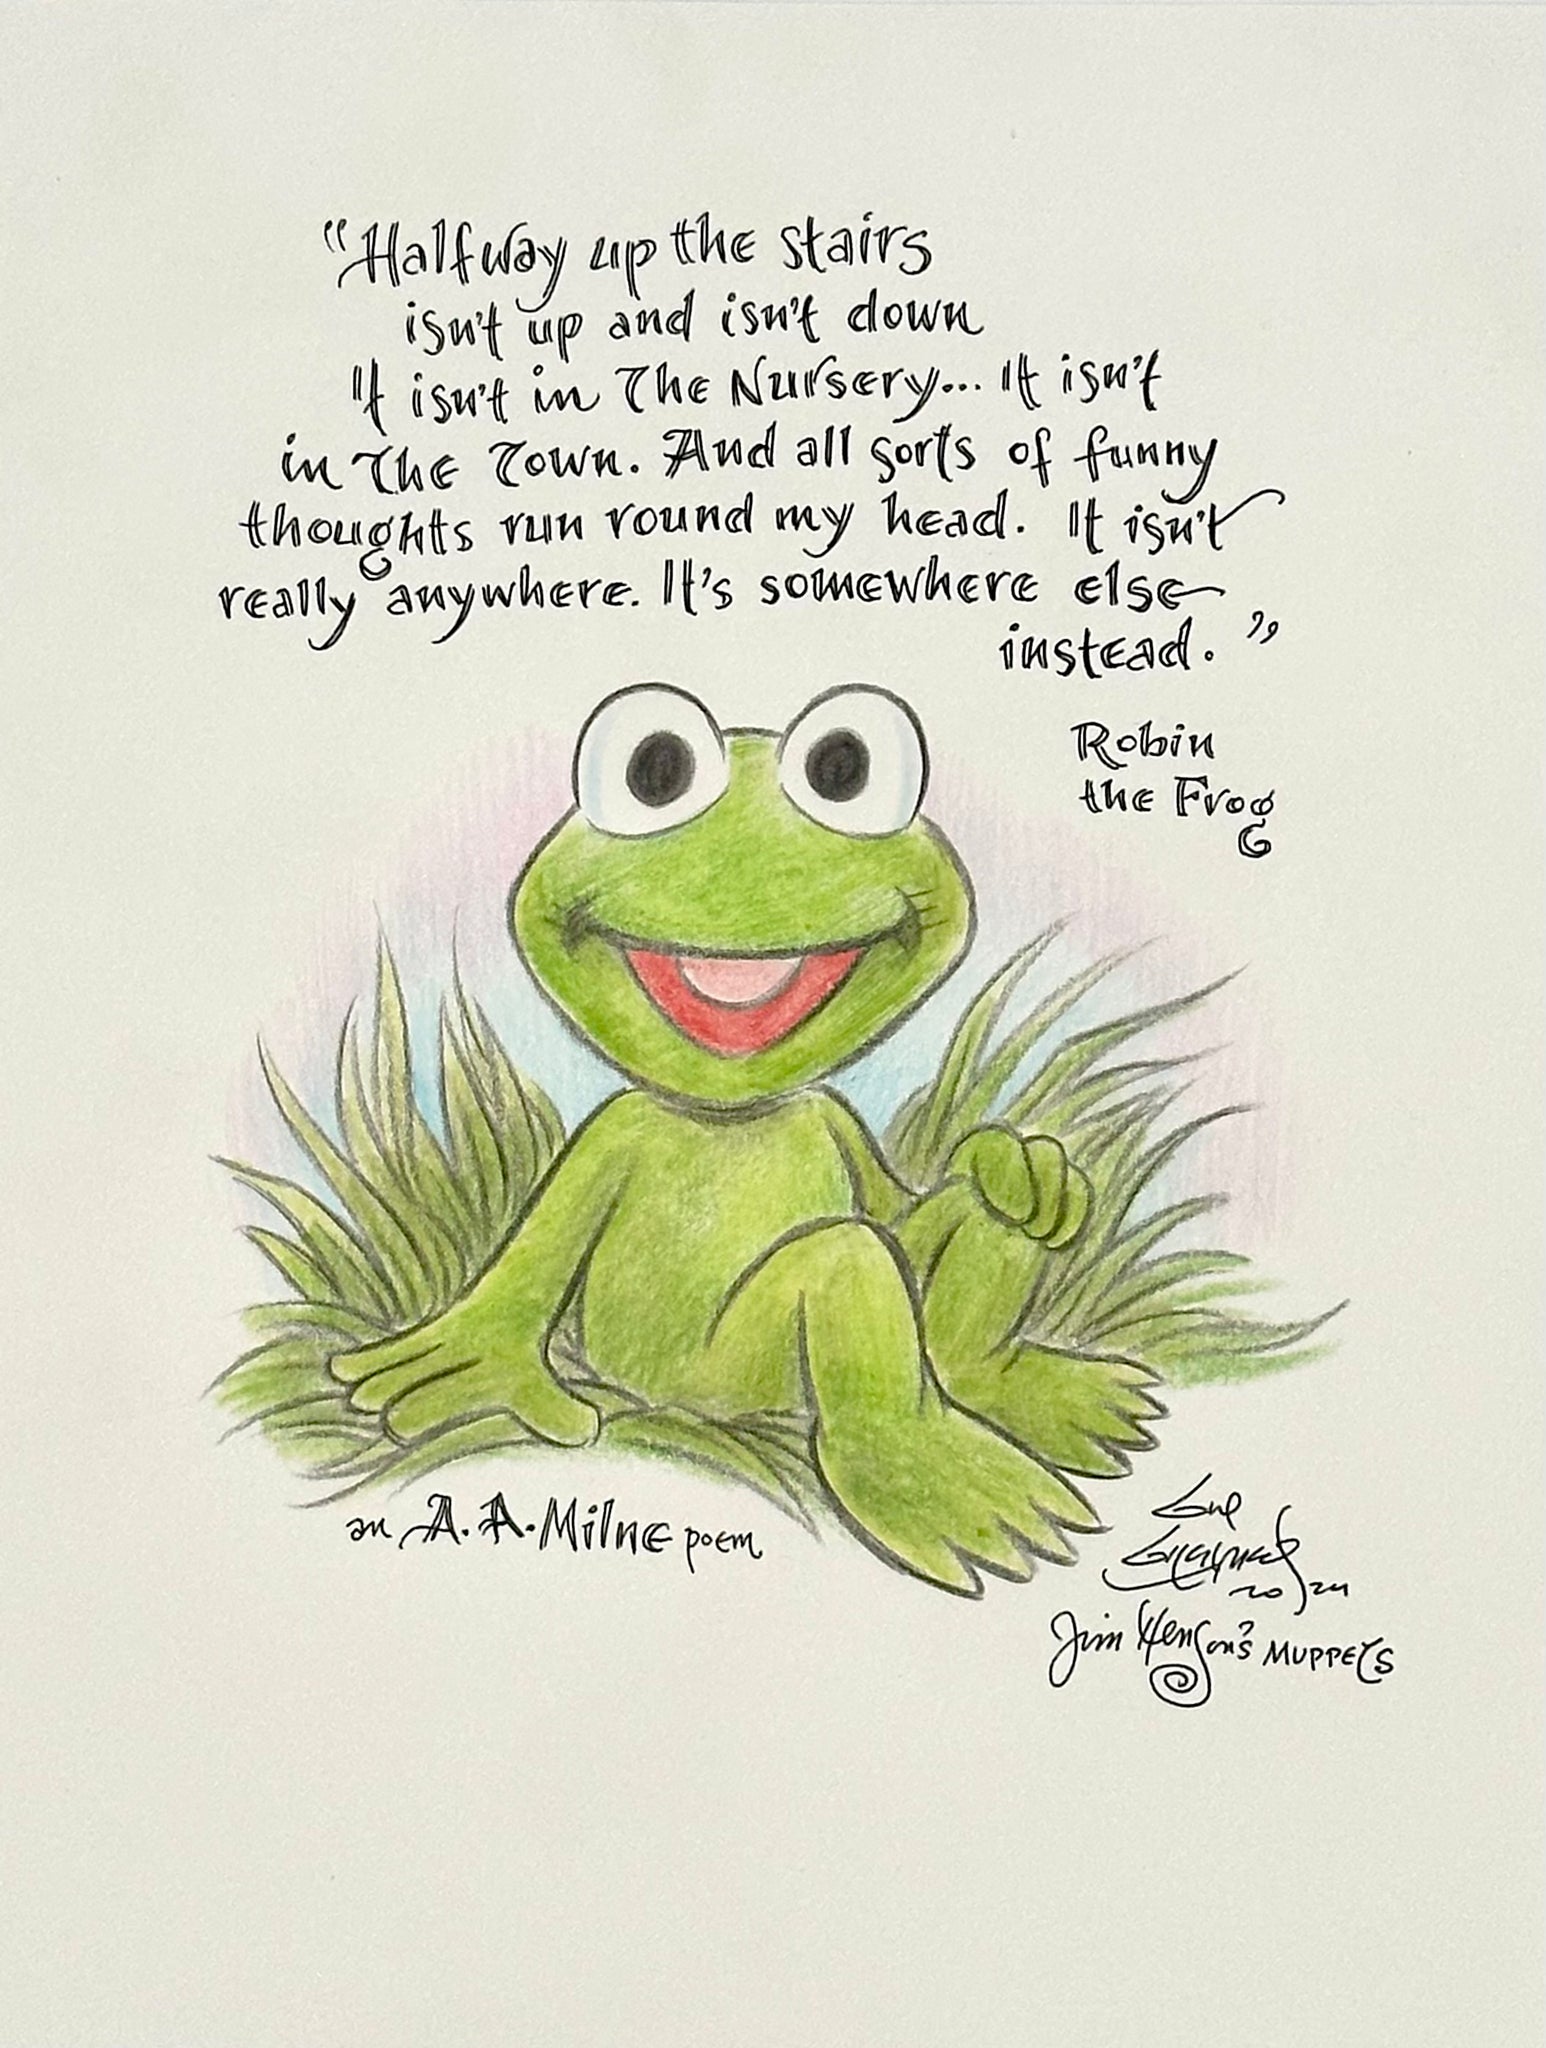 "Halfway up the stairs
isn't up and isn't down
It isn't in The Nursery... It isn't
in The Town. And all sorts of funny
thoughts run round my head. It isn't
really anywhere. It's somewhere else
instead."
Robin
the Frog
an A. A. Milne poem
2024
Jim Henson's MUPPETS